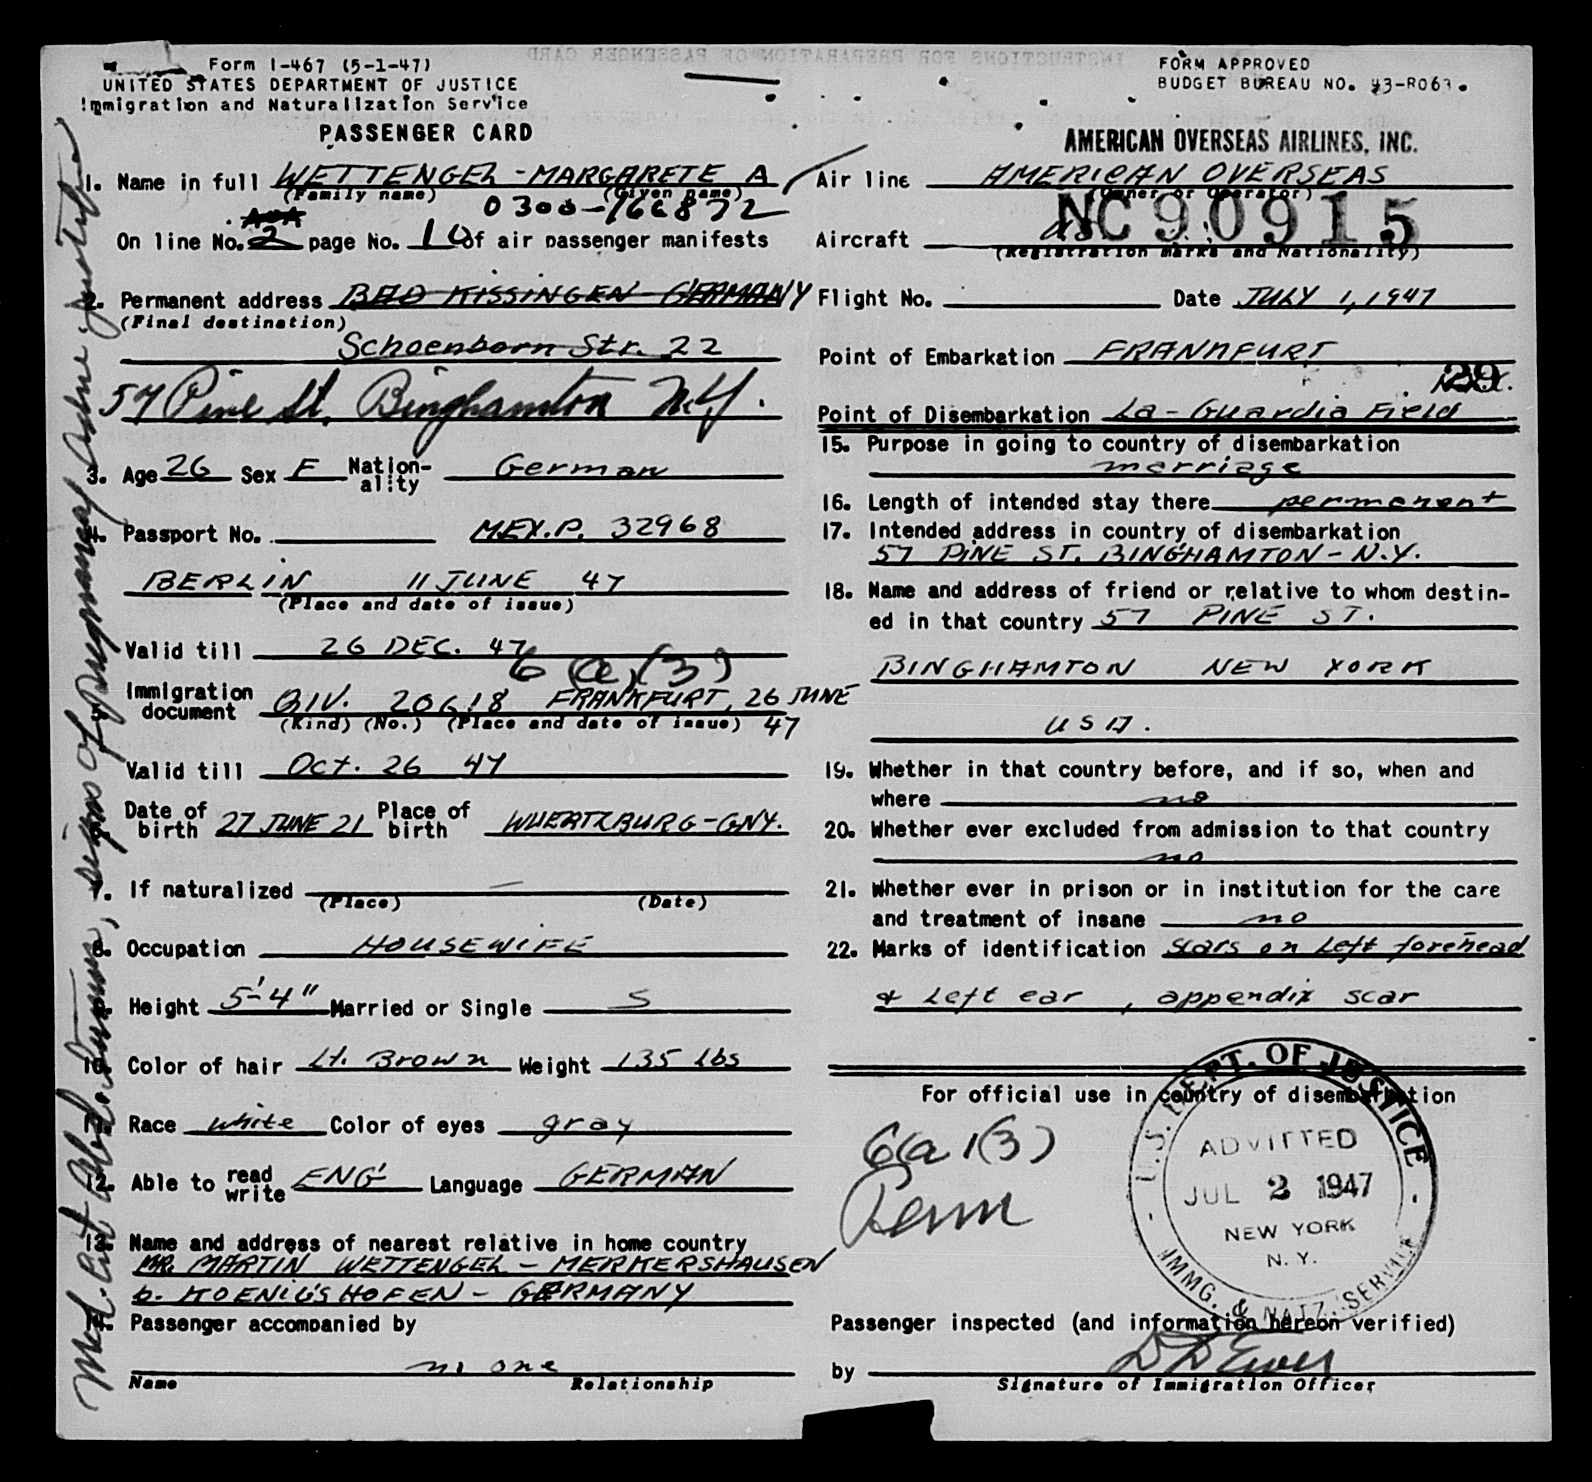 Form I-467 (5-1-47)
UNITED STATES DEPARTMENT OF JUSTICE
Immigration and Naturalization Service
PASSENGER CARD
1. Name in full WETTENGEL - MARGARETE A
(Family name) (Given name)
0300-166872
On line No. 2 page No. 10 of air passenger manifests
2. Permanent address BAD KISSINGEN GERMANY
(Final destination)
Schoenborn Str. 22
57 Pine St. Binghamton N.Y.
3. Age 26 Sex F Nation-ality German
4. Passport No. M.EX.P. 32968
BERLIN 11 JUNE 47
(Place and date of issue)
Valid till 26 DEC. 47
6(a)(3)
Immigration document QIV. 20618 FRANKFURT, 26 JUNE 47
(Kind) (No.) (Place and date of issue)
Valid till Oct. 26 47
Date of birth 27 JUNE 21 Place of birth WUERTZBURG-GNY.
7. If naturalized —
(Place) (Date)
8. Occupation HOUSEWIFE
9. Height 5'-4" Married or Single S
10. Color of hair Lt. Brown Weight 135 lbs
11. Race white Color of eyes gray
12. Able to read write ENG Language GERMAN
13. Name and address of nearest relative in home country
MR. MARTIN WETTENGEL - MERKERSHAUSEN
b. KOENIGSHOFEN - GERMANY
14. Passenger accompanied by
no one
Name Relationship
Med. Cert signs of pregnancy
FORM APPROVED
BUDGET BUREAU NO. 43-R063.
AMERICAN OVERSEAS AIRLINES, INC.
Air line AMERICAN OVERSEAS
(Owner or Operator)
Aircraft NC90915
(Registration marks and Nationality)
Flight No. Date JULY 1, 1947
Point of Embarkation FRANKFURT
29
Point of Disembarkation La-Guardia Field
15. Purpose in going to country of disembarkation
marriage
16. Length of intended stay there permanent
17. Intended address in country of disembarkation
57 PINE ST. BINGHAMTON - N.Y.
18. Name and address of friend or relative to whom destin-
ed in that country 57 PINE ST.
BINGHAMTON NEW YORK
USA.
19. Whether in that country before, and if so, when and
where no
20. Whether ever excluded from admission to that country
no
21. Whether ever in prison or in institution for the care
and treatment of insane no
22. Marks of identification scars on left forehead
& left ear, appendix scar
For official use in country of disembarkation
6(a)(3)
Perm
U.S. DEPT. OF JUSTICE
ADMITTED
JUL 2 1947
NEW YORK
N.Y.
IMMG. & NATZ. SERVICE
Passenger inspected (and information hereon verified)
by
Signature of Immigration Officer